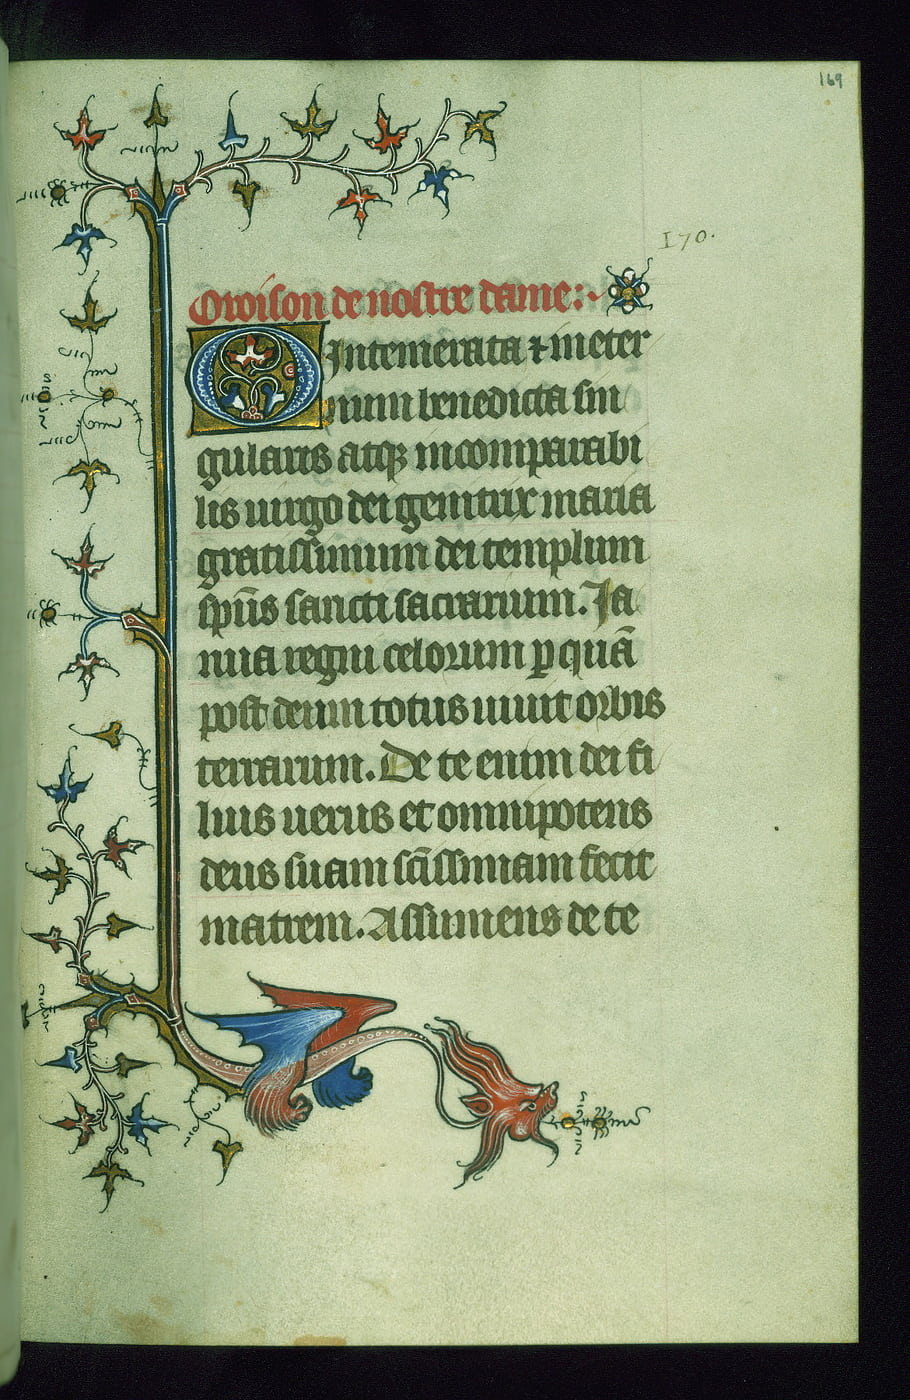 169
170.
Oroison de nostre dame:~
O Intemerata ⁊ in eter
num benedicta sin
gularis atqꝫ incomparabi
lis uirgo dei genitrix maria
gratissimum dei templum
sp̄us sancti sacrarium. Ja
nua regni celorum ꝑ quā
post deum totus uiuit orbis
terrarum. De te enim dei fi
lius uerus et omnipotens
deus suam sc̄issimam fecit
matrem. Assumens de te